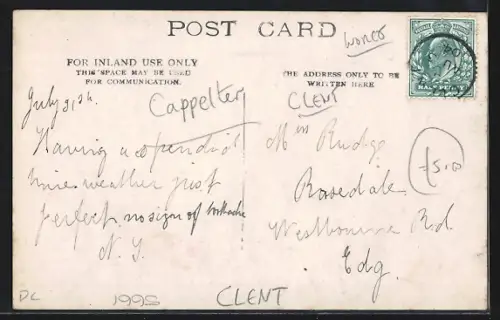 POST CARD
Worcs
FOR INLAND USE ONLY
THIS SPACE MAY BE USED
FOR COMMUNICATION.
THE ADDRESS ONLY TO BE
WRITTEN HERE
HALFPENNY
July 31st.
Cappelter
CLENT
Having a splendid
time weather just
perfect. no sign of
N. Y.
Miss Rudge
Rosedale
Westbourne Rd
Edg.
£5.00
DC
1995
CLENT